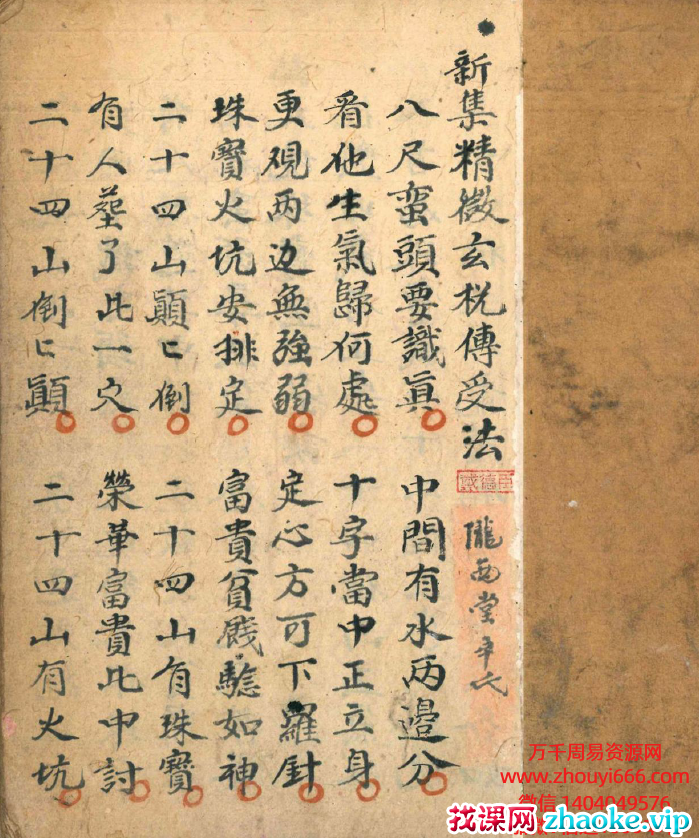 新集精微玄梲傳受法
隴西堂辛氏
八尺蛮頭要識眞 中間有水两邊分
看他生氣歸何處 十字當中正立身
更覌两边無強弱 定心方可下羅針
珠寳火坑安排定 富貴貧賎驗如神
二十四山顛匕倒 二十四山有珠寳
有人塟了此一穴 榮華富貴此中討
二十四山倒匕顛 二十四山有火坑
万千周易资源网
www.zhouyi666.com
微信 1404049576
找课网 zhaoke.vip